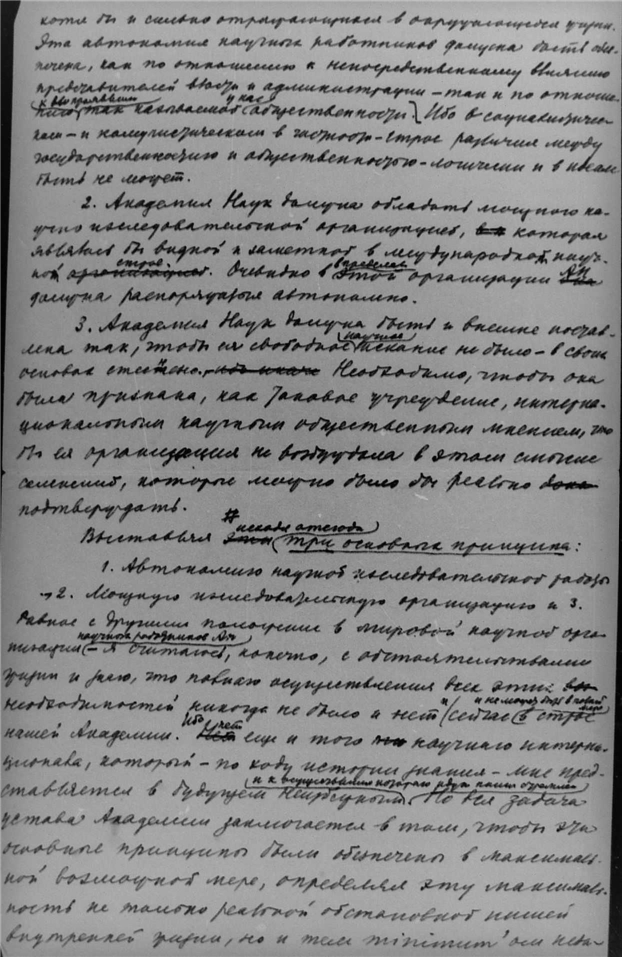 хотя бы и сильно отражающимися в окружающей жизни.
Эта автономия научных работников должна быть обес-
печена, как по отношению к непосредственному влиянию
представителей власти и администрации – так и по отноше-
к выявлению у нас
нию так называемой общественности. Ибо в социалистичес-
ком – и коммунистическом в частности – строе различия между
государственностью и общественностью – логически и в идеале
быть не может.
2. Академия Наук должна обладать мощною на-
учно исследовательской организацией, которая
являлась бы видной и заметной в международной науч-
строе. пределах
ной организации. Очевидно в этой организации АН
должна распоряжаться автономно.
3. Академия Наук должна быть и внешне постав-
научное
лена так, чтобы ея свободное искание не было – в своих
основах стеснено. Необходимо, чтобы она
была признана, как таковое учреждение, интерна-
циональным научным общественным мнением, что
бы ея организация не возбуждала в этом смысле
сомнений, которые можно было бы реально
подтверждать.
исходя отсюда
Выставляя эти три основных принципа:
1. Автономию научной исследовательской работы
2. Мощную исследовательскую организацию и 3.
Равное с другими положение в мировой научной орга-
научных работников
низации – я считаюсь, конечно, с обстоятельствами
жизни и знаю, что полного осуществления всех этих
и не может быть в полной мере
необходимостей никогда не было и нет и сейчас в строе
Ибо нет
нашей Академии. Нет еще и того научного интерна-
ционала, который – по ходу истории знания – мне пред-
и к осуществлению которого идут наши стремления
ставляется в будущем неизбежным. Но вся задача
устава Академии заключается в том, чтобы эти
основные принципы были обеспечены в максималь-
ной возможной мере, определяя эту максималь-
ность не только реальной обстановкой нашей
внутренней жизни, но и тем minimum'ом неза-